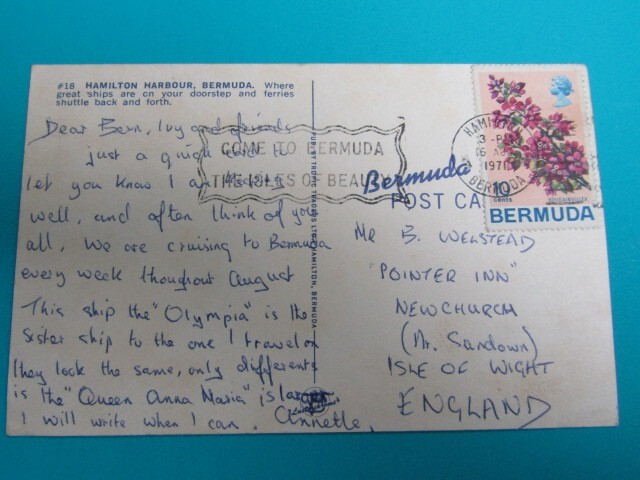 #18 HAMILTON HARBOUR, BERMUDA. Where
great ships are on your doorstep and ferries
shuttle back and forth.
Dear Bern, Ivy and friends
Just a quick card to
let you know I am keeping
well, and often think of you
all, We are cruising to Bermuda
every week thoughout August
This ship the "Olympia" is the
Sister ship to the one I travel on
they look the same, only differents
is the "Queen Anna Maria" is larger
I will write when I can. Annette.
COME TO BERMUDA
THE ISLES OF BEAUTY
HAMILTON
3 - PM
1970
BERMUDA
10
CENTS
BOUGAINVILLEA
BERMUDA
Bermuda
POST CA
Mr B. WELSTEAD
"POINTER INN"
NEWCHURCH
(Nr. Sandown)
ISLE OF WIGHT
ENGLAND